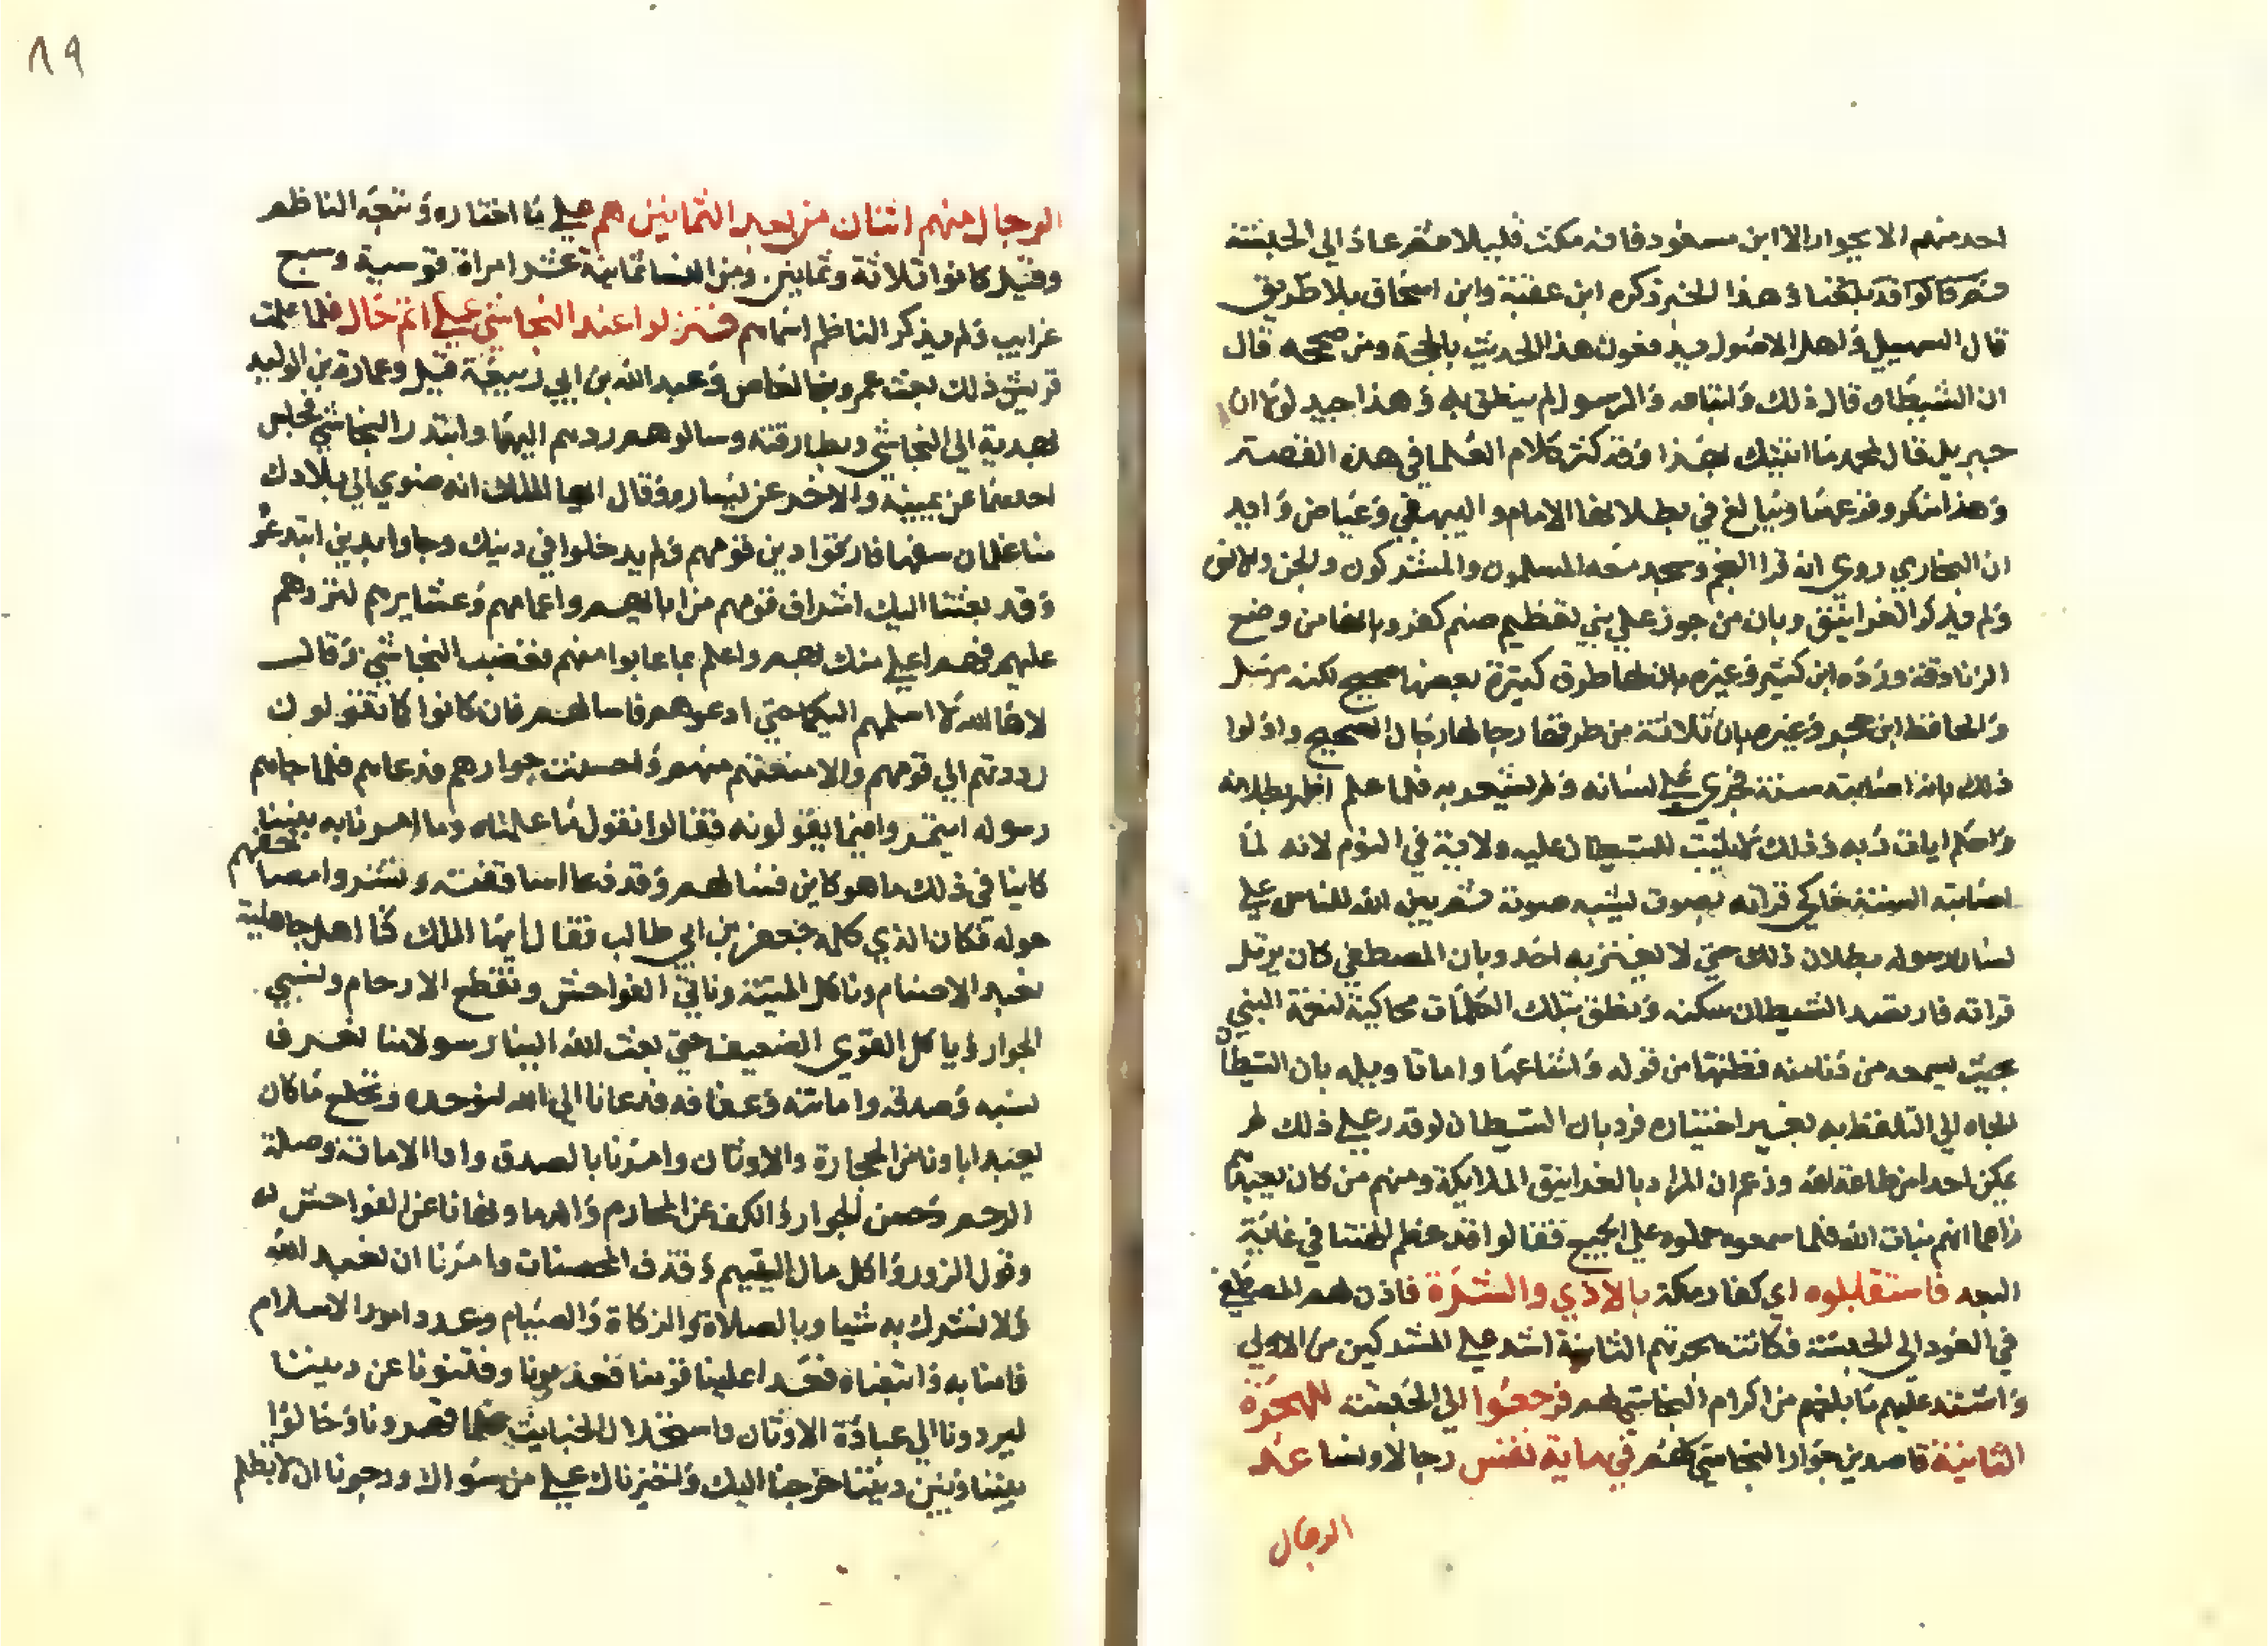 احد منهم الا بجوار الا ابن مسعود فانه مكث قليلا ثم عاد الي الحبشة
قال السهيلي واهل الاصول يدفعون هذا الحديث بالحجة ومن صححه قال
ان الشيطان قال ذلك واشاعه والرسول لم ينطق به وهذا جيد لولا ان
جبريل قال لمحمد ما اتيتك بهذا وقد كثر كلام العلما في هذه القصة
ان البخاري روي انه قرا النجم وسجد معه المسلمون والمشركون والجن والانس
ولم يذكر الغرانيق وبان من جوز علي نبي تعظيم صنم كفر وبانها من وضع
الزنادقة ورده ابن كثير وغيره بان لها طرق كثيرة بعضها صحيح لكنه مرسل
والحافظ ابن حجر وغيره بان ثلاثة من طرقها رجالها رجال الصحيح واولوا
ذلك بانه اصابته سنة فجري علي لسانه ولم يشعر به فلما علم اظهر بطلانه
واحكم ايات ربه وذلك لا يثبت للشيطان عليه ولاية في النوم لانه لما
اصابته السنة حاكي قراته بصوت يشبه صوته ثم بين الله للناس علي
لسان رسوله بطلان ذلك حتي لا يغتر به احد وبان المصطفي كان يرتل
قراته فارتصد الشيطان سكته ونطق بتلك الكلمات محاكيا نغمة النبي
بحيث يسمعه من دنا منه فظنها من قوله واشاعها واما تاويله بان الشيطان
الجاه الي التلفظ به بغير اختياره فرد بان الشيطان لو قدر علي ذلك لم
يمكن احدا من طاعة الله وزعم ان المراد بالغرانيق الملايكة ومنهم من كان يعبدهم
زاعما انهم بنات الله فلما سمعوه حملوه علي الجميع فقالوا قد عظم الهتنا في غاية
البعد فاستقبلوه اي كفار مكة بالاذي والشدة فاذن لهم المصطفي
في العود الي الحبشة فكانت هجرتهم الثانية اشد علي المشركين من الاولي
واشتد عليهم ما بلغهم من اكرام النجاشي لهم فرجعوا الي الحبشة للهجرة
الثانية قاصدين جوار النجاشي لهم في ماية نفس رجالا ونسا عد
الرجال
٨٩
الرجال منهم اثنان من بعد الثمانين هم علي ما اختاره وتبعه الناظم
وقيل كانوا ثلاثة وثمانين ومن النسا ثمانية عشر امراة قرشية وسبع
غرايب ولم يذكر الناظم اسماهم فنزلوا عند النجاشي علي اتم حال فلما علمت
قريش ذلك بعثت عمرو بن العاص وعبد الله بن ابي ربيعة قيل وعمارة بن الوليد
بهدية الي النجاشي وبطارقته وسالوهم ردهم اليهما وابتدر النجاشي فجلس
احدهما عن يمينه والاخر عن يساره وقال ايها الملك انه ضوي الي بلادك
منا غلمان سفها فارقوا دين قومهم ولم يدخلوا في دينك وجاوا بدين ابتدعوه
وقد بعثنا اليك اشراف قومهم من ابايهم واعمامهم وعشايرهم لتردهم
عليهم فهم اعلي منك بهم واعلم بما عابوا منهم فغضب النجاشي وقال
لاها الله لا اسلمهم اليكما حتي ادعوهم فاسالهم فان كانوا كما تقولون
رددتهم الي قومهم والا منعتهم منهم واحسنت جوارهم فدعاهم فلما جاهم
رسوله ايتمروا فيما يقولونه فقالوا نقول ما علمناه وما امرنا به نبينا
كاينا في ذلك ما هو كاين فسالهم وقد دعا اساقفته ونشروا مصاحفهم
حوله فكان الذي كلمه جعفر بن ابي طالب فقال ايها الملك كنا اهل جاهلية
نعبد الاصنام وناكل الميتة وناتي الفواحش ونقطع الارحام ونسي
الجوار وياكل القوي الضعيف حتي بعث الله الينا رسولا منا نعرف
نسبه وصدقه وامانته وعفافه فدعانا الي الله لنوحده ونخلع ما كان
يعبد اباونا من الحجارة والاوثان وامرنا بالصدق وادا الامانة وصلة
الرحم وحسن الجوار والكف عن المحارم والدما ونهانا عن الفواحش
وقول الزور واكل مال اليتيم وقذف المحصنات وامرنا ان نعبد الله
ولا نشرك به شيا وبالصلاة والزكاة والصيام وعدد امور الاسلام
فامنا به واتبعناه فعدا علينا قومنا فعذبونا وفتنونا عن ديننا
ليردونا الي عبادة الاوثان واستحلال الخبايث فلما قهرونا وحالوا
بيننا وبين ديننا خرجنا اليك واخترناك علي من سواك ورجونا ان لا نظلم